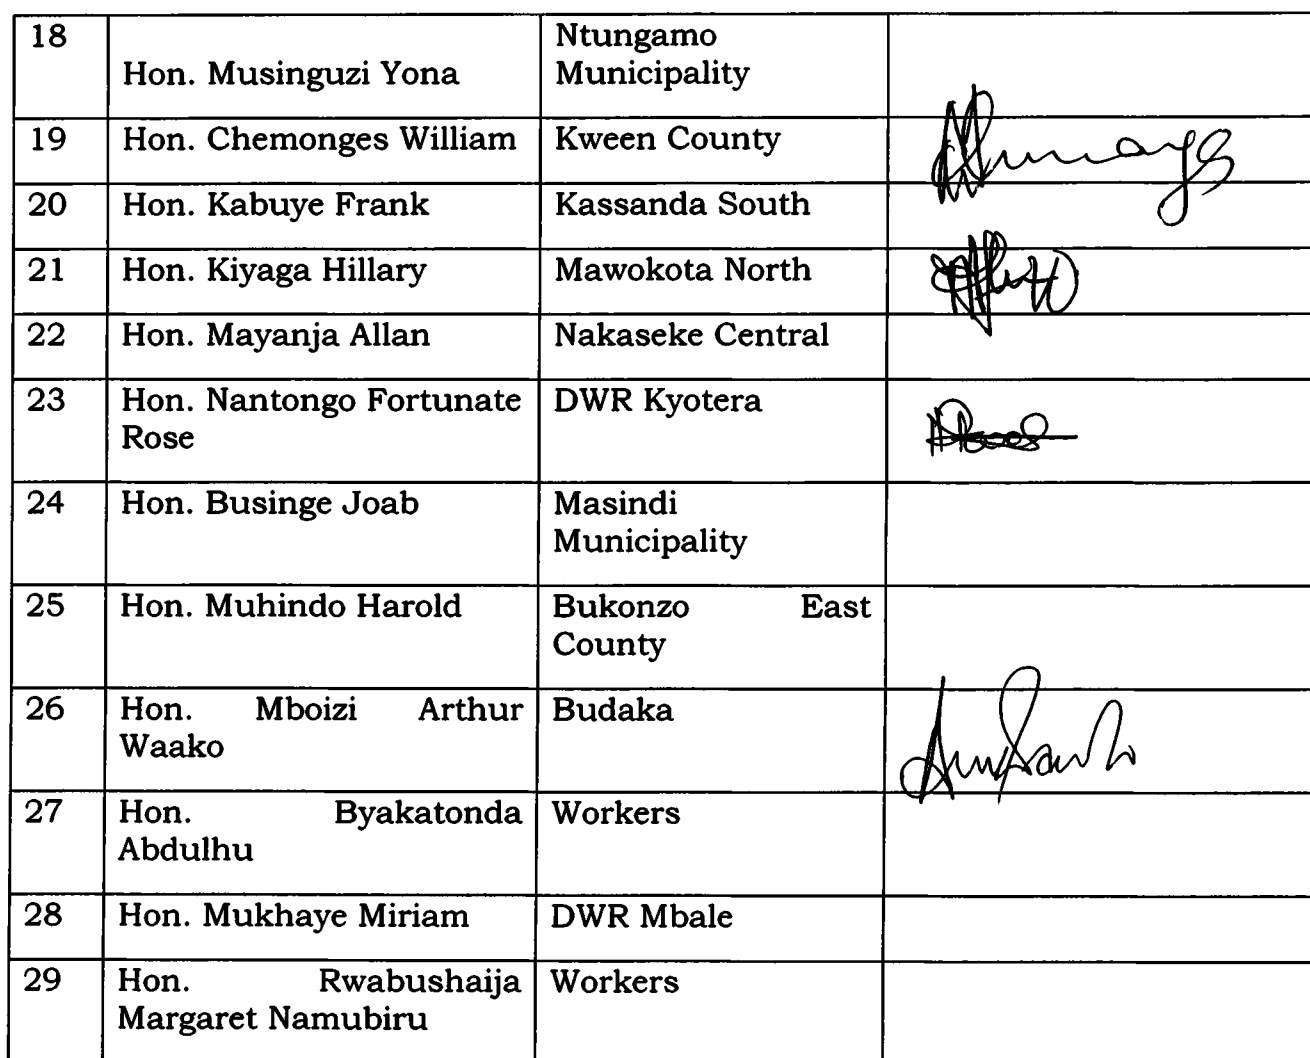 18
Hon. Musinguzi Yona
Ntungamo
Municipality
19
Hon. Chemonges William
Kween County
20
Hon. Kabuye Frank
Kassanda South
21
Hon. Kiyaga Hillary
Mawokota North
22
Hon. Mayanja Allan
Nakaseke Central
23
Hon. Nantongo Fortunate
Rose
DWR Kyotera
24
Hon. Businge Joab
Masindi
Municipality
25
Hon. Muhindo Harold
Bukonzo East
County
26
Hon. Mboizi Arthur
Waako
Budaka
27
Hon. Byakatonda
Abdulhu
Workers
28
Hon. Mukhaye Miriam
DWR Mbale
29
Hon. Rwabushaija
Margaret Namubiru
Workers